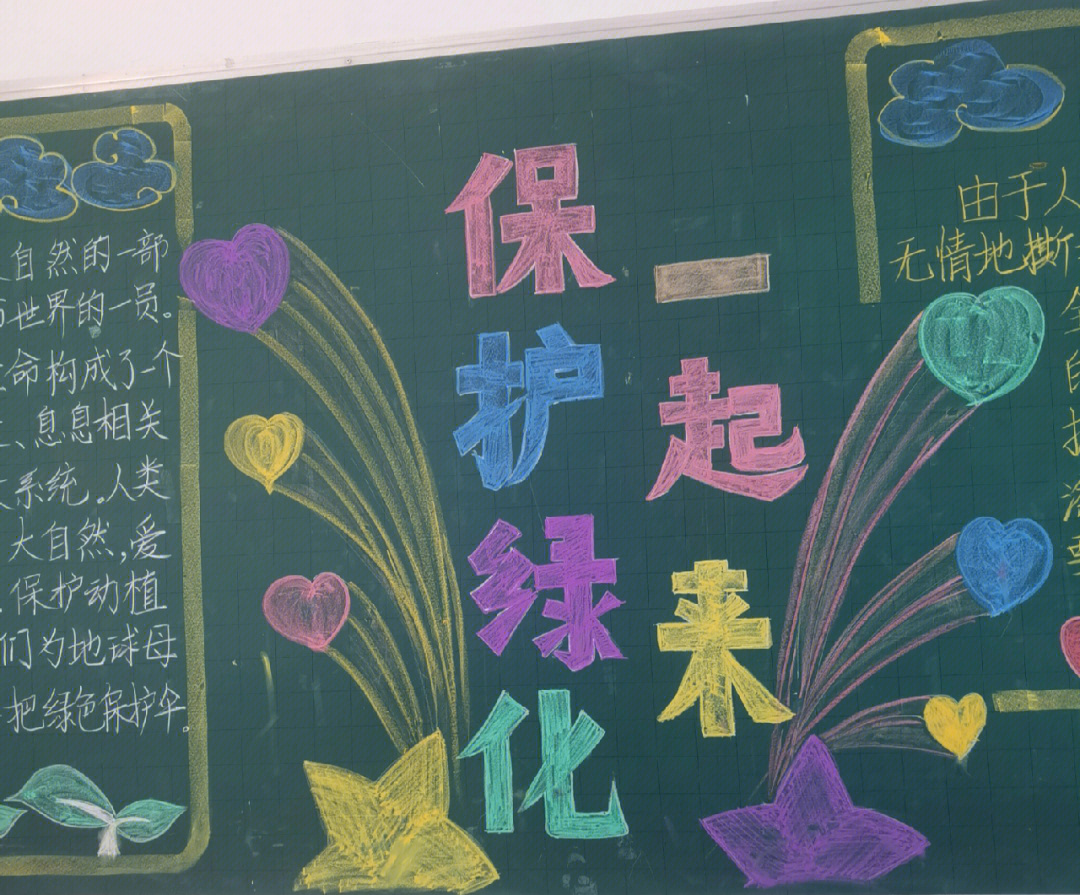 自然的一部
世界的一员。
命构成了一个
、息息相关
系统。人类
大自然,爱
保护动植
们为地球母
把绿色保护伞。
保护绿化
一起来
由于人
无情地撕